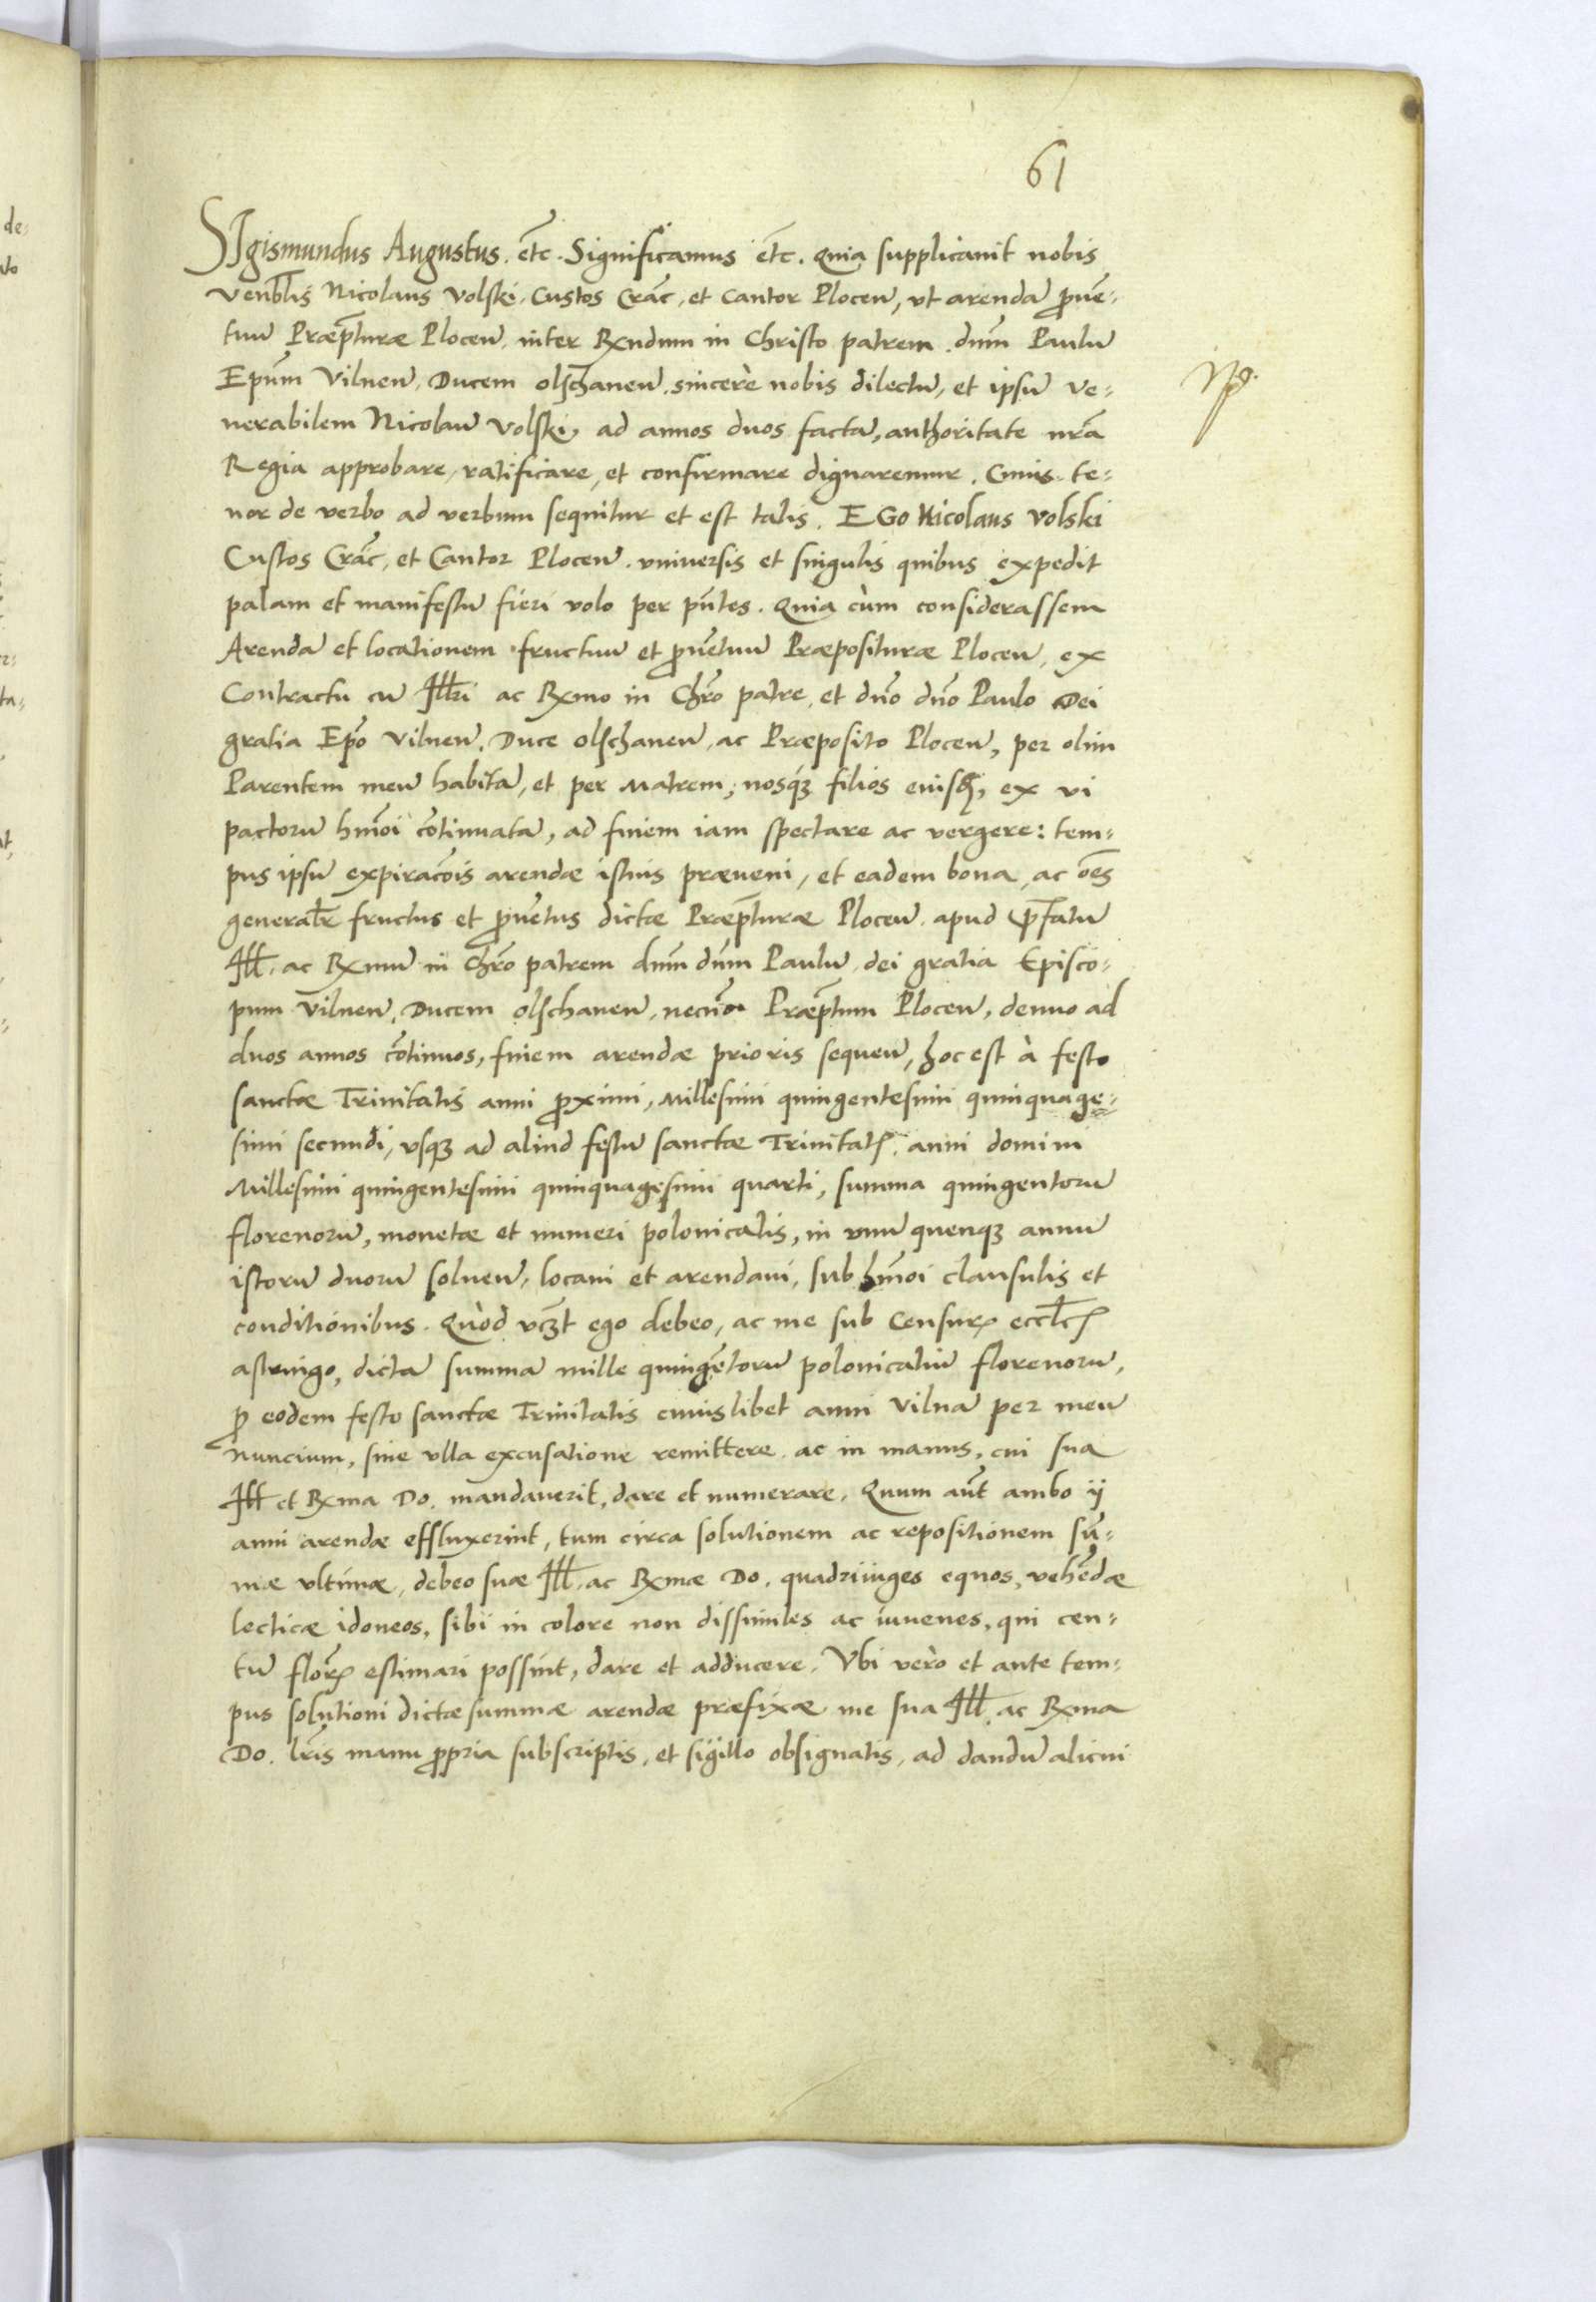 61
SIgismundus Augustus. etc. Significamus etc. Quia supplicauit nobis
Venblis Nicolaus Volski, Custos Crac, et Cantor Plocen, vt arendã prouẽ-
tuũ Præpturæ Plocen, inter Rxndum in Christo patrem, dnm Paulũ
Epum Vilnen, Ducem olschanen, sincerè nobis dilectũ, et ipsũ ve-
nerabilem Nicolaũ Volski, ad annos duos factã, authoritate nrã
Regia approbare, ratificare, et confirmare dignaremur. Cuius te-
nor de verbo ad verbum sequitur et est talis. EGo Nicolaus Volski
Custos Crac, et Cantor Plocen, vniuersis et singulis quibus expedit
palam et manifestũ fieri volo per pntes. Quia cùm considerassem
Arendã et locationem fructuũ et prouẽtuũ Præposituræ Plocen, ex
Contractu cũ Illri ac Rxmo in Chro patre, et dno dno Paulo Dei
gratia Epo Vilnen, Duce olschanen, ac Præposito Plocen, per olim
Parentem meũ habitã, et per Matrem, nosqȝ filios eiusdꝫ, ex vi
pactorũ hmoi cõtinuatã, ad finem iam spectare ac vergere: tem-
pus ipsũ expiracois arendæ istius præueni, et eadem bona, ac oẽs
generalr fructus et prouẽtus dictæ Præpturæ Plocen, apud pfatũ
Ill. ac Rxmũ in Chro patrem dnm dnm Paulũ, dei gratia Episco-
pum Vilnen, Ducem olschanen, necnõ Præptum Plocen, denuo ad
duos annos cõtinuos, finem arendæ prioris sequen, hoc est à festo
sanctæ Trinitatis anni proximi, Millesimi quingentesimi quinquage-
simi secundi, vsqȝ ad aliud festũ sanctæ Trinitatꝭ, anni domini
Millesimi quingentesimi quinquagesimi quarti, summa quingentorũ
florenorũ, monetæ et numeri polonicalis, in vnũ quenqȝ annũ
istorũ duorũ soluen, locaui et arendaui, sub hmoi clausulis et
conditionibus. Quòd vcȝt ego debeo, ac me sub Censurꝭ eccltꝭ
astringo, dictã summã mille quingẽtorũ polonicaliũ florenorũ,
pro eodem festo sanctæ Trinitatis cuiuslibet anni Vilnã per meũ
nuncium, sine vlla excusatione remittere, ac in manus, cui sua
Ill et Rxma Do. mandauerit, dare et numerare. Quum aut ambo ij
anni arendæ effluxerint, tum circa solutionem ac repositionem sũ-
mæ vltimæ, debeo suæ Ill. ac Rxmæ Do. quadriiuges equos, vehẽdæ
lecticæ idoneos, sibi in colore non dissimiles ac iuuenes, qui cen-
tũ florꝭ estimari possint, dare et adducere. Vbi verò et ante tem-
pus solutioni dictæ summæ arendæ præfixæ me sua Ill. ac Rxma
Do. lris manu propria subscriptis, et sigillo obsignatis, ad dandũ alicui